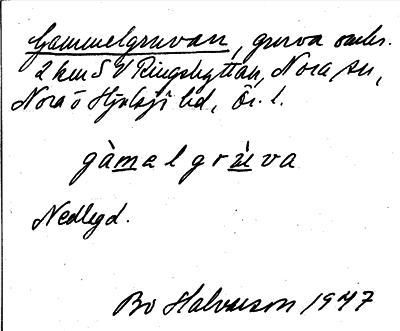 Gammelgruvan, gruva omkr.
2 km SV Ringshyttan, Nora sn,
Nora o Hjulsjö bd, Ör. l.
gàmelgrùva
Nedlagd.
Bo Halvarson 1947